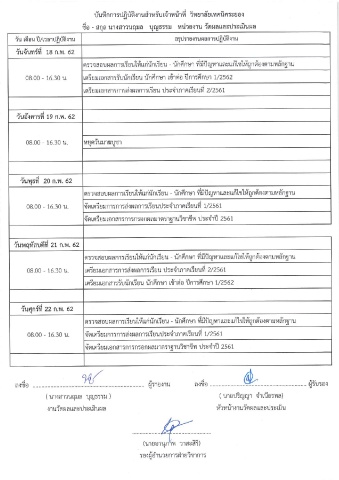 บันทึกการปฏิบัติงานสำหรับเจ้าหน้าที่ วิทยาลัยเทคนิคระยอง
ชื่อ - สกุล นางสาวนฤมล บุญธรรม หน่วยงาน วัดผลและประเมินผล
วัน เดือน ปี/เวลาปฏิบัติงาน สรุปรายงานผลการปฏิบัติงาน
วันจันทร์ที่ 18 ก.พ. 62
ตรวจสอบผลการเรียนให้แก่นักเรียน - นักศึกษา ที่มีปัญหาและแก้ไขให้ถูกต้องตามหลักฐาน
08.00 - 16.30 น. เตรียมเอกสารรับนักเรียน นักศึกษา เข้าต่อ ปีการศึกษา 1/2562
เตรียมเอกสารการส่งผลการเรียน ประจำภาคเรียนที่ 2/2561
วันอังคารที่ 19 ก.พ. 62
08.00 - 16.30 น. หยุดวันมาฆบูชา
วันพุธที่ 20 ก.พ. 62
ตรวจสอบผลการเรียนให้แก่นักเรียน - นักศึกษา ที่มีปัญหาและแก้ไขให้ถูกต้องตามหลักฐาน
08.00 - 16.30 น. จัดเตรียมการการส่งผลการเรียนประจำภาคเรียนที่ 1/2561
จัดเตรียมเอกสารการกรอกผลมาตรฐานวิชาชีพ ประจำปี 2561
วันพฤหัสบดีที่ 21 ก.พ. 62
ตรวจสอบผลการเรียนให้แก่นักเรียน - นักศึกษา ที่มีปัญหาและแก้ไขให้ถูกต้องตามหลักฐาน
08.00 - 16.30 น. เตรียมเอกสารการส่งผลการเรียน ประจำภาคเรียนที่ 2/2561
เตรียมเอกสารรับนักเรียน นักศึกษา เข้าต่อ ปีการศึกษา 1/2562
วันศุกร์ที่ 22 ก.พ. 62
ตรวจสอบผลการเรียนให้แก่นักเรียน - นักศึกษา ที่มีปัญหาและแก้ไขให้ถูกต้องตามหลักฐาน
08.00 - 16.30 น. จัดเตรียมการการส่งผลการเรียนประจำภาคเรียนที่ 1/2561
จัดเตรียมเอกสารการกรอกผลมาตรฐานวิชาชีพ ประจำปี 2561
ลงชื่อ ผู้รายงาน ลงชื่อ ผู้รับรอง
( นางสาวนฤมล บุญธรรม )
งานวัดผลและประเมินผล หัวหน้างานวัดผลและประเมิน
รองผู้อำนวยการฝ่ายวิชาการ